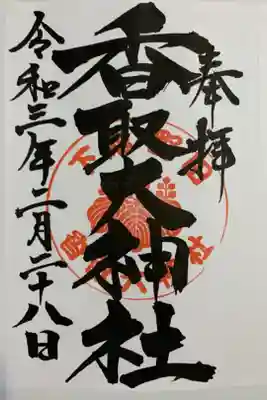 奉拝
香取大神社
令和三年二月二十八日